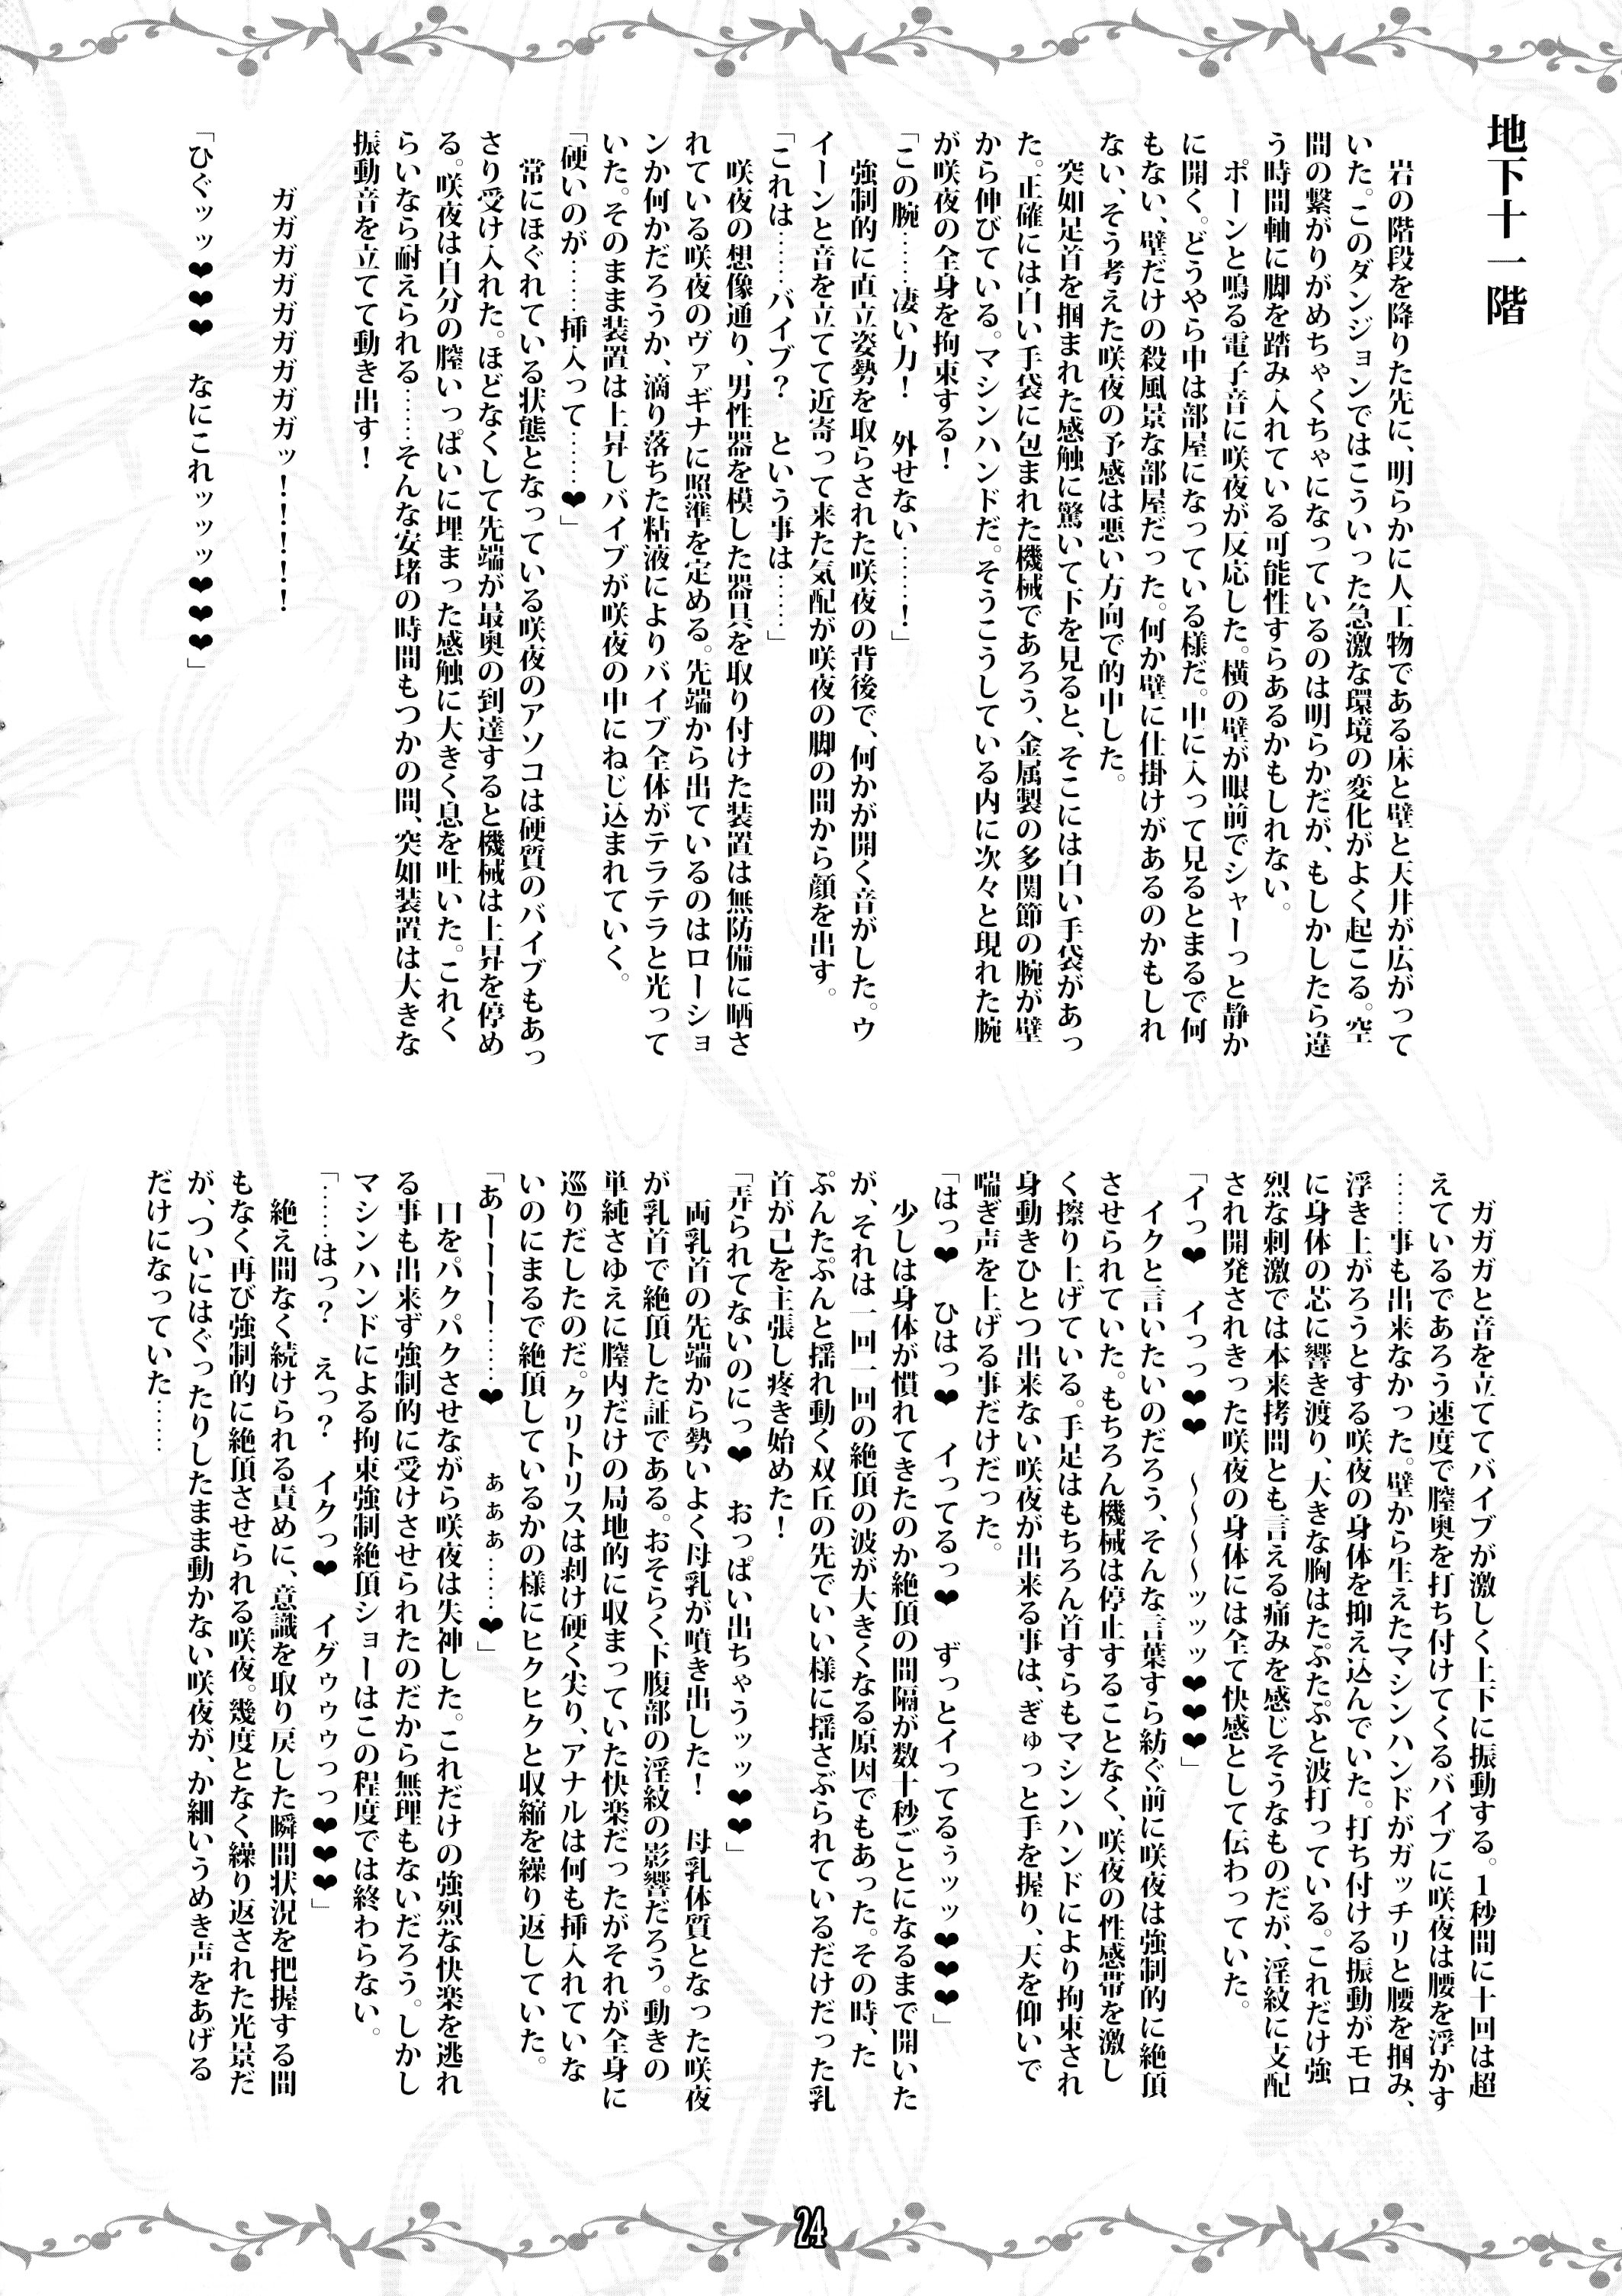 地下十一階
岩の階段を降りた先に、明らかに人工物である床と壁と天井が広がって
いた。このダンジョンではこういった急激な環境の変化がよく起こる。空
間の繋がりがめちゃくちゃになっているのは明らかだが、もしかしたら違
う時間軸に脚を踏み入れている可能性すらあるかもしれない。
ポーンと鳴る電子音に咲夜が反応した。横の壁が眼前でシャーっと静か
に開く。どうやら中は部屋になっている様だ。中に入って見るとまるで何
もない、壁だけの殺風景な部屋だった。何か壁に仕掛けがあるのかもしれ
ない、そう考えた咲夜の予感は悪い方向で的中した。
突如足首を掴まれた感触に驚いて下を見ると、そこには白い手袋があっ
た。正確には白い手袋に包まれた機械であろう、金属製の多関節の腕が壁
から伸びている。マシンハンドだ。そうこうしている内に次々と現れた腕
が咲夜の全身を拘束する！
「この腕……凄い力！　外せない……！」
強制的に直立姿勢を取らされた咲夜の背後で、何かが開く音がした。ウ
イーンと音を立てて近寄って来た気配が咲夜の脚の間から顔を出す。
「これは……バイブ？　という事は……」
咲夜の想像通り、男性器を模した器具を取り付けた装置は無防備に晒さ
れている咲夜のヴァギナに照準を定める。先端から出ているのはローショ
ンか何かだろうか、滴り落ちた粘液によりバイブ全体がテラテラと光って
いた。そのまま装置は上昇しバイブが咲夜の中にねじ込まれていく。
「硬いのが……挿入って……❤」
常にほぐれている状態となっている咲夜のアソコは硬質のバイブもあっ
さり受け入れた。ほどなくして先端が最奥の到達すると機械は上昇を停め
る。咲夜は自分の膣いっぱいに埋まった感触に大きく息を吐いた。これく
らいなら耐えられる……そんな安堵の時間もつかの間、突如装置は大きな
振動音を立てて動き出す！
ガガガガガガガガガッ！！！！！
「ひぐッッ❤❤❤　なにこれッッッ❤❤❤」
ガガガと音を立ててバイブが激しく上下に振動する。1秒間に十回は超
えているであろう速度で膣奥を打ち付けてくるバイブに咲夜は腰を浮かす
……事も出来なかった。壁から生えたマシンハンドがガッチリと腰を掴み、
浮き上がろうとする咲夜の身体を抑え込んでいた。打ち付ける振動がモロ
に身体の芯に響き渡り、大きな胸はたぷたぷと波打っている。これだけ強
烈な刺激では本来拷問とも言える痛みを感じそうなものだが、淫紋に支配
され開発されきった咲夜の身体には全て快感として伝わっていた。
「イっ❤　イっっ❤❤　～～～～ッッッ❤❤❤」
イクと言いたいのだろう、そんな言葉すら紡ぐ前に咲夜は強制的に絶頂
させせられていた。もちろん機械は停止することなく、咲夜の性感帯を激し
く擦り上げている。手足はもちろん首すらもマシンハンドにより拘束され
身動きひとつ出来ない咲夜が出来る事は、ぎゅっと手を握り、天を仰いで
喘ぎ声を上げる事だけだった。
「はっ❤　ひはっ❤　イってるっ❤　ずっとイってるぅッッ❤❤❤」
少しは身体が慣れてきたのか絶頂の間隔が数十秒ごとになるまで開いた
が、それは一回一回の絶頂の波が大きくなる原因でもあった。その時、た
ぷんたぷんと揺れ動く双丘の先でいい様に揺さぶられているだけだった乳
首が己を主張し疼き始めた！
「弄られてないのにっ❤　おっぱい出ちゃうッッ❤❤」
両乳首の先端から勢いよく母乳が噴き出した！　母乳体質となった咲夜
が乳首で絶頂した証である。おそらく下腹部の淫紋の影響だろう。動きの
単純さゆえに膣内だけの局地的に収まっていた快楽だったがそれが全身に
巡りだしたのだ。クリトリスは剥け硬く尖り、アナルは何も挿入れていな
いのにまるで絶頂しているかの様にヒクヒクと収縮を繰り返していた。
「あーーーー……❤　　ぁぁぁ……❤」
口をパクパクさせながら咲夜は失神した。これだけの強烈な快楽を逃れ
る事も出来ず強制的に受けさせせられたのだから無理もないだろう。しかし
マシンハンドによる拘束強制絶頂ショーはこの程度では終わらない。
「……はっ？　えっ？　イクっ❤　イグゥゥっっ❤❤❤」
絶え間なく続けられる責めに、意識を取り戻した瞬間状況を把握する間
もなく再び強制的に絶頂させせられる咲夜。幾度となく繰り返された光景だ
が、ついにはぐったりしたまま動かない咲夜が、か細いうめき声をあげる
だけになっていた……
24